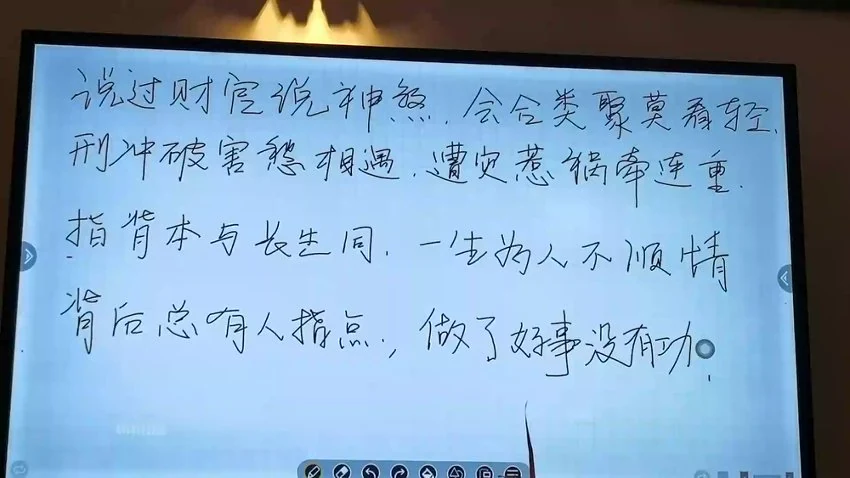 说过财官说神煞.会合类聚莫看轻.
刑冲破害愁相遇.遭灾惹祸牵连重.
指背本与长生同.一生为人不顺情
背后总有人指点,做了好事没有功.